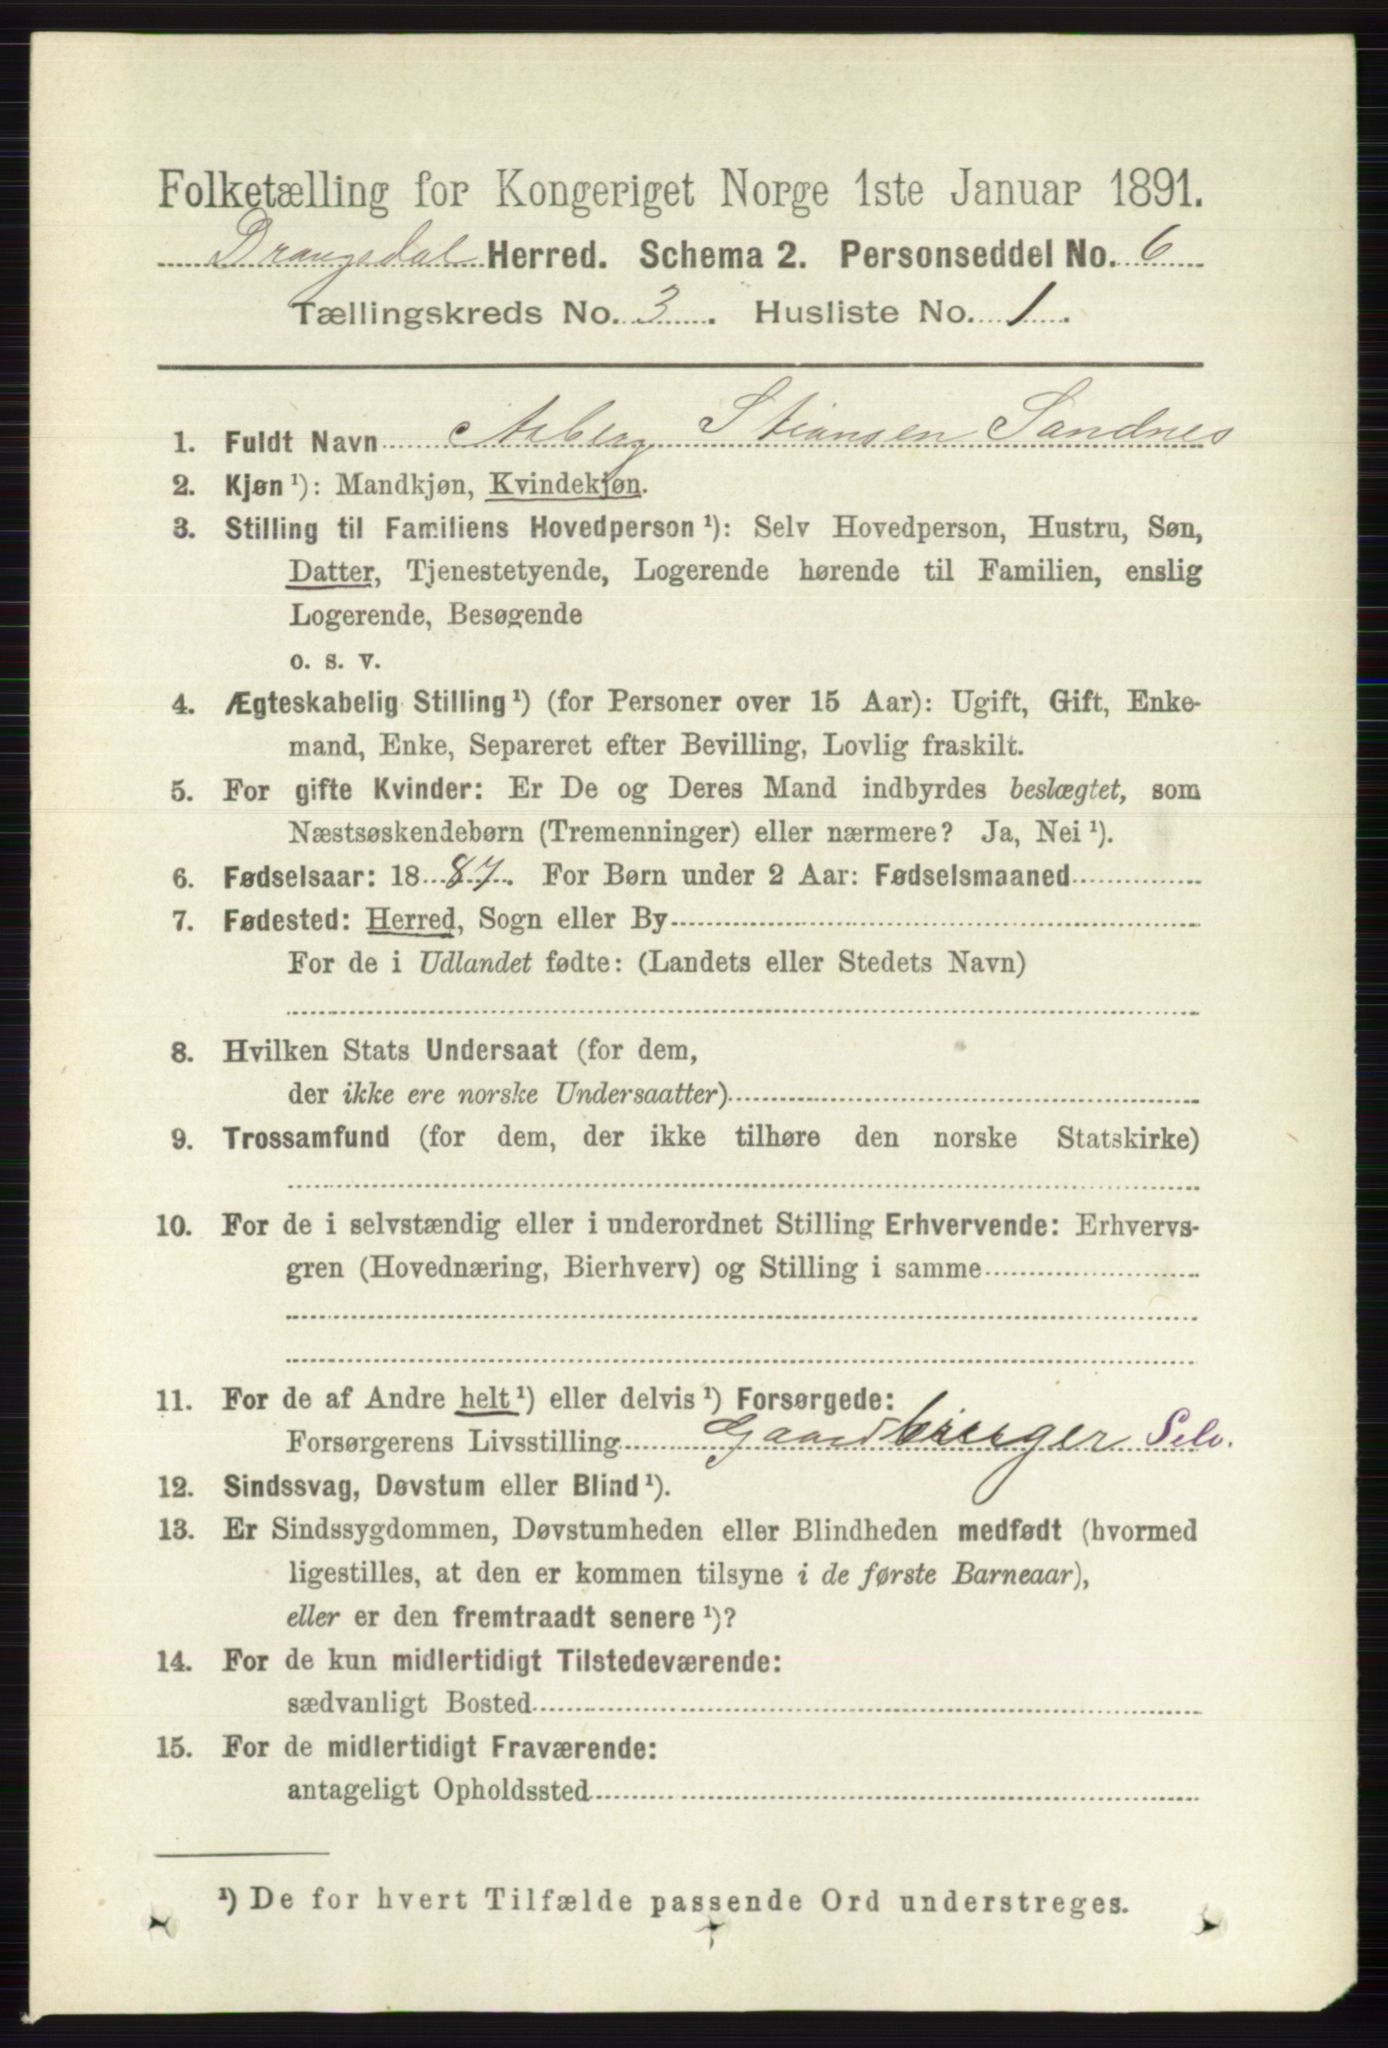 Folketælling for Kongeriget Norge 1ste Januar 1891.
Drangedal Herred. Schema 2. Personseddel No. 6
Tællingskreds No. 3. Husliste No. 1.
1. Fuldt Navn Asberg Stiansen Sandnes
2. Kjøn ¹): Mandkjøn, Kvindekjøn.
3. Stilling til Familiens Hovedperson ¹): Selv Hovedperson, Hustru, Søn,
Datter, Tjenestetyende, Logerende hørende til Familien, enslig
Logerende, Besøgende
o. s. v.
4. Ægteskabelig Stilling ¹) (for Personer over 15 Aar): Ugift, Gift, Enke-
mand, Enke, Separeret efter Bevilling, Lovlig fraskilt.
5. For gifte Kvinder: Er De og Deres Mand indbyrdes beslægtet, som
Næstsøskendebørn (Tremenninger) eller nærmere? Ja, Nei ¹).
6. Fødselsaar: 1887. For Børn under 2 Aar: Fødselsmaaned
7. Fødested: Herred, Sogn eller By
For de i Udlandet fødte: (Landets eller Stedets Navn)
8. Hvilken Stats Undersaat (for dem,
der ikke ere norske Undersaatter)
9. Trossamfund (for dem, der ikke tilhøre den norske Statskirke)
10. For de i selvstændig eller i underordnet Stilling Erhvervende: Erhvervs-
gren (Hovednæring, Bierhverv) og Stilling i samme
11. For de af Andre helt ¹) eller delvis ¹) Forsørgede:
Forsørgerens Livsstilling Gaardbruger Selv.
12. Sindssvag, Døvstum eller Blind ¹).
13. Er Sindssygdommen, Døvstumheden eller Blindheden medfødt (hvormed
ligestilles, at den er kommen tilsyne i de første Barneaar),
eller er den fremtraadt senere ¹)?
14. For de kun midlertidigt Tilstedeværende:
sædvanligt Bosted
15. For de midlertidigt Fraværende:
antageligt Opholdssted
¹) De for hvert Tilfælde passende Ord understreges.